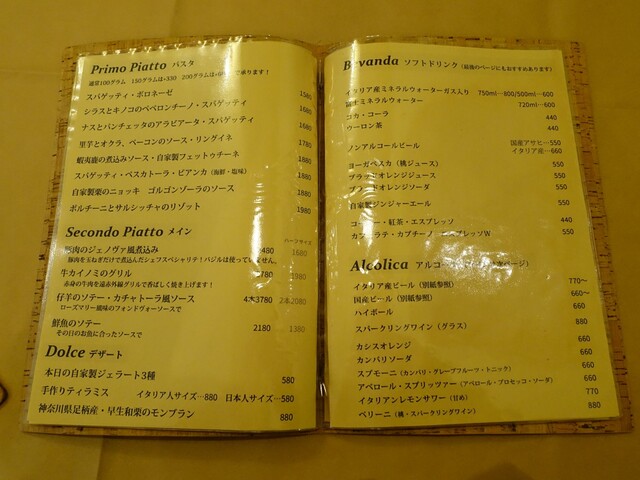 Primo Piatto パスタ
通常100グラム 150グラムは+330 200グラムは+ で承ります!
スパゲッティ・ボロネーゼ 1580
シラスとキノコのペペロンチーノ・スパゲッティ 1680
ナスとパンチェッタのアラビアータ・スパゲッティ 1680
里芋とオクラ、ベーコンのソース・リングイネ 1780
蝦夷鹿の煮込みソース・自家製フェットゥチーネ 1880
スパゲッティ・ペスカトーラ・ビアンカ (海鮮・塩味) 1880
自家製栗のニョッキ ゴルゴンゾーラのソース 1880
ポルチーニとサルシッチャのリゾット 1980
Secondo Piatto メイン ハーフサイズ
豚肉のジェノヴァ風煮込み 1680
豚肉を玉ねぎだけで煮込んだシェフスペシャリテ!バジルは使っていません。
牛カイノミのグリル 1980
赤身の牛肉を遠赤外線グリルで香ばしく焼き上げます!
仔羊のソテー・カチャトーラ風ソース 4本3780 2本2080
ローズマリー風味のフォンドヴォーソースで
鮮魚のソテー 2180 1380
その日のお魚に合ったソースで
Dolce デザート
本日の自家製ジェラート3種 580
手作りティラミス イタリア人サイズ…880 日本人サイズ…580
神奈川県足柄産・早生和栗のモンブラン 880
Bevanda ソフトドリンク (最後のページにもおすすめあります)
イタリア産ミネラルウォーターガス入り 750ml…800/500ml…600
富士ミネラルウォーター 720ml…600
コカ・コーラ 440
ウーロン茶 440
ノンアルコールビール 国産アサヒ…550
イタリア産…660
ヨーガペスカ (桃ジュース) 550
ブラッドオレンジジュース 550
ブラッドオレンジソーダ 550
自家製ジンジャーエール 550
コーヒー・紅茶・エスプレッソ 440
カフェラテ・カプチーノ エスプレッソW 550
Alcolica アルコー ページ)
イタリア産ビール (別紙参照) 770〜
国産ビール (別紙参照) 660〜
ハイボール 660
スパークリングワイン (グラス) 880
カシスオレンジ 660
カンパリソーダ 660
スプモーニ (カンパリ・グレープフルーツ・トニック) 660
アペロール・スプリッツァー (アペロール・プロセッコ・ソーダ) 660
イタリアンレモンサワー (甘め) 770
ベリーニ (桃・スパークリングワイン) 880